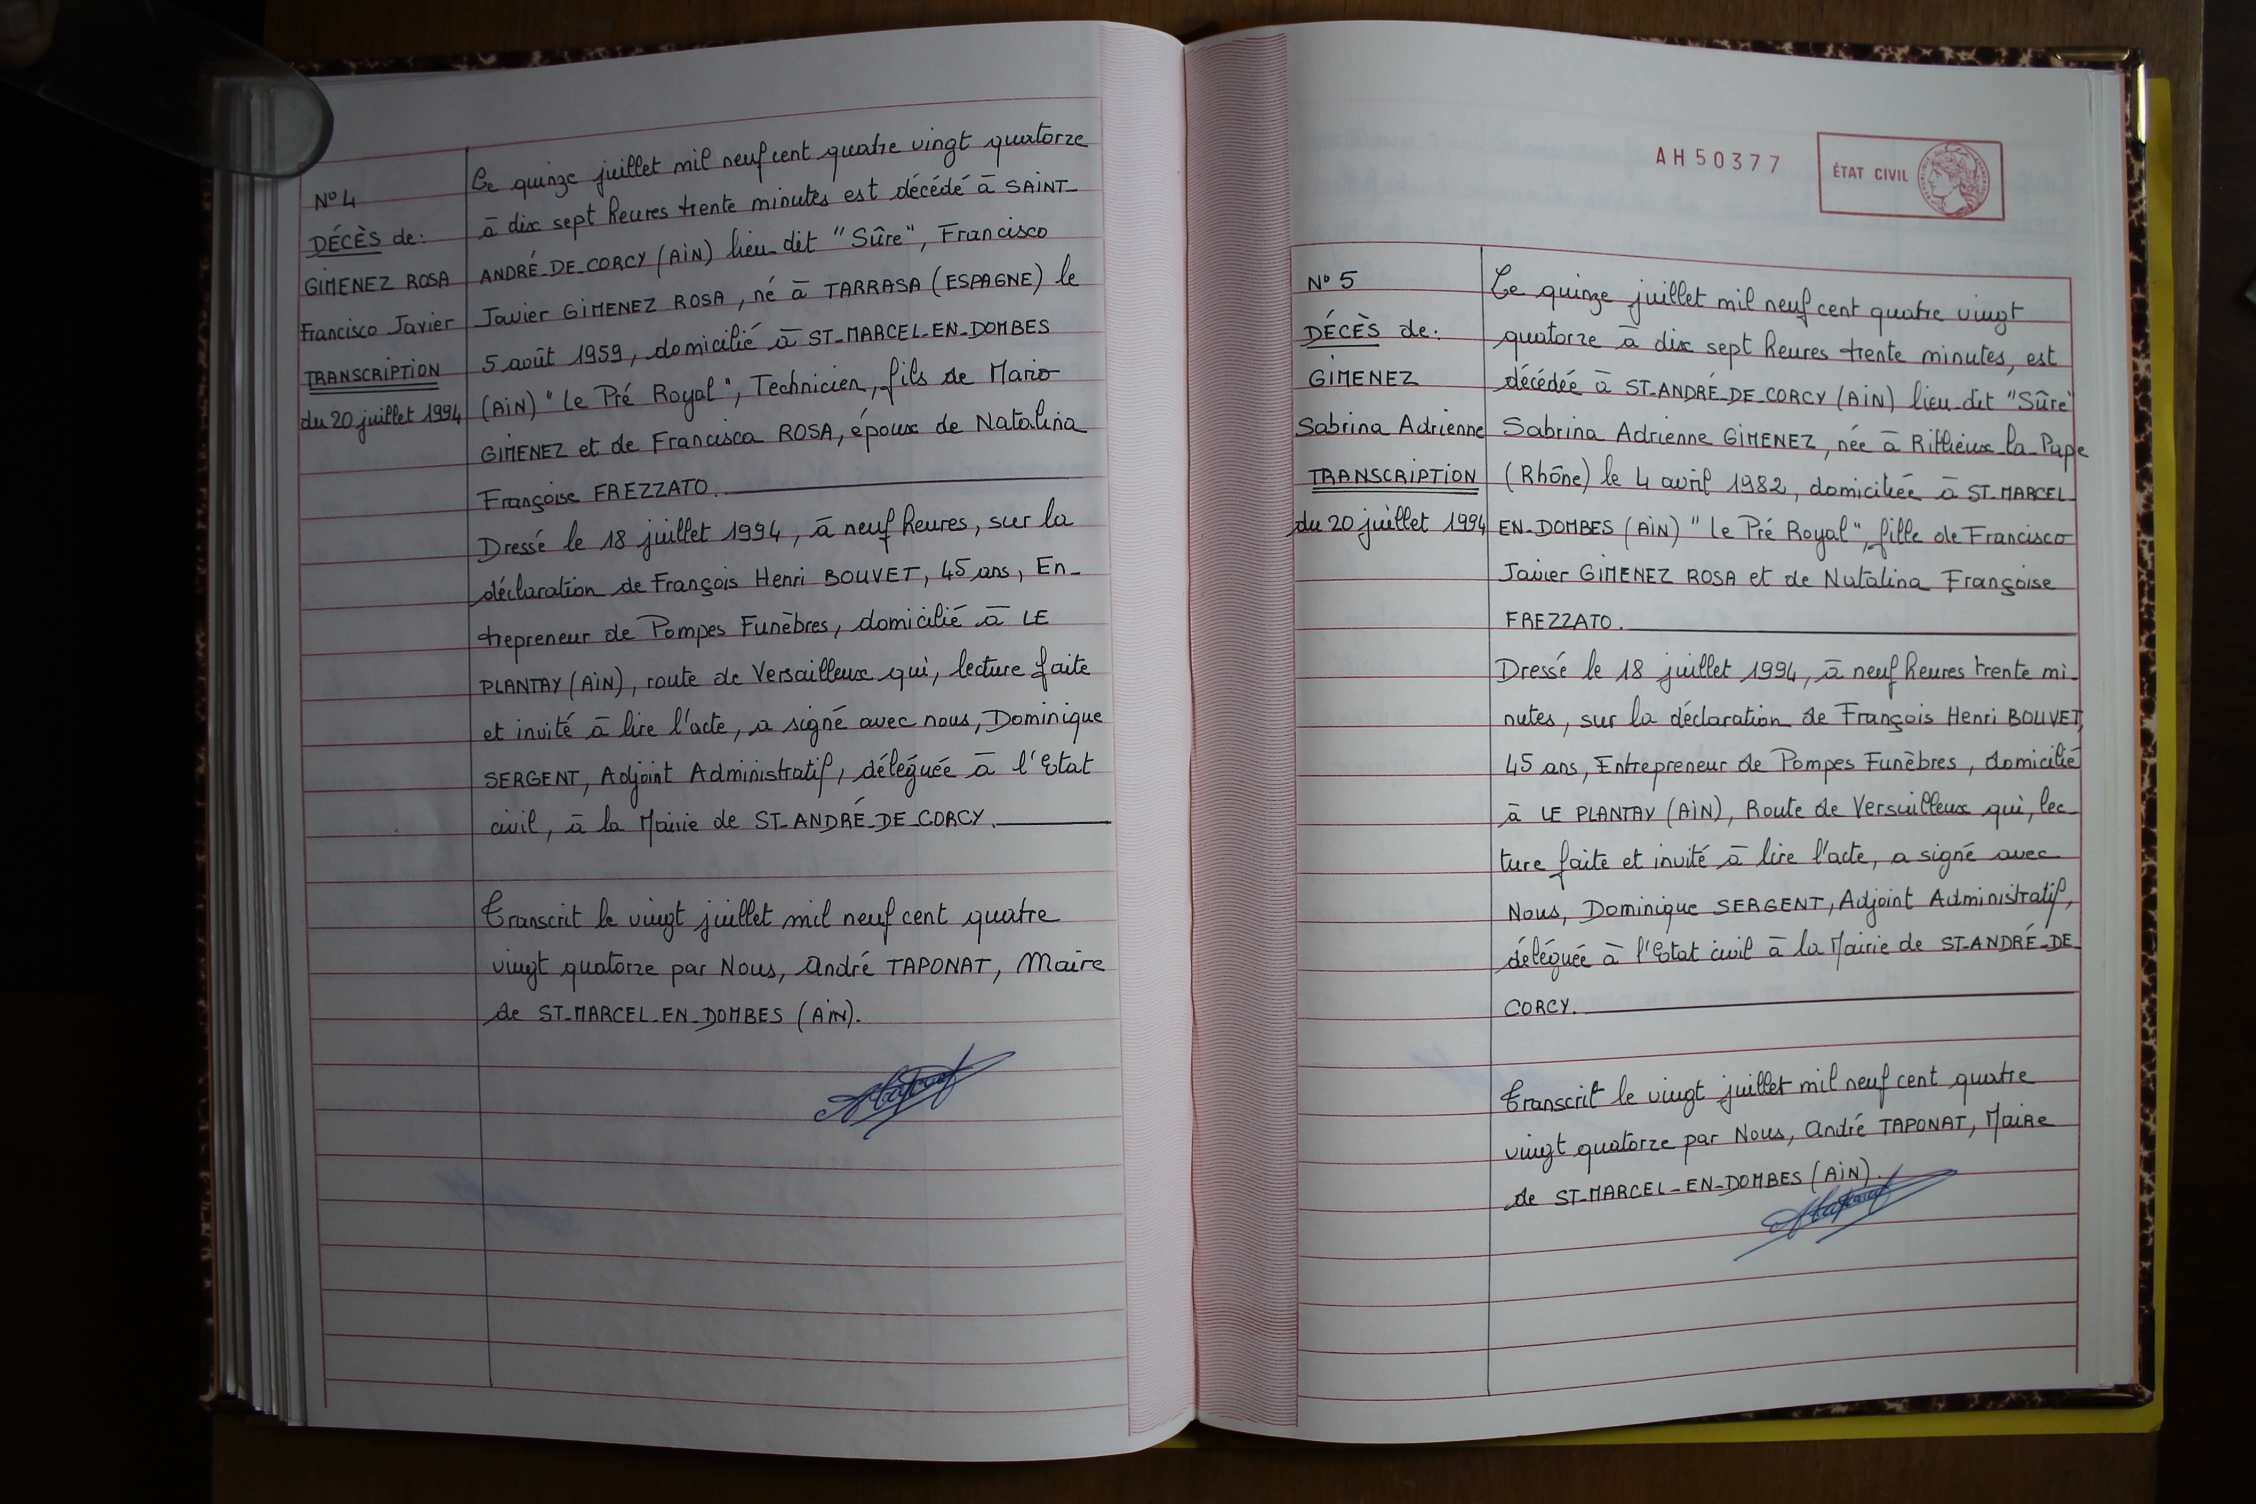 N° 4
DÉCÈS de:
GIMENEZ ROSA
Francisco Javier
TRANSCRIPTION
du 20 juillet 1994
Le quinze juillet mil neuf cent quatre vingt quatorze
à dix sept heures trente minutes est décédé à SAINT-
ANDRÉ-DE-CORCY (AIN) lieu-dit "Sûre", Francisco
Javier GIMENEZ ROSA, né à TARRASA (ESPAGNE) le
5 août 1959, domicilié à ST-MARCEL-EN-DOMBES
(AIN) "Le Pré Royal", Technicien, fils de Mario
GIMENEZ et de Francisca ROSA, époux de Natalina
Françoise FREZZATO.
Dressé le 18 juillet 1994, à neuf heures, sur la
déclaration de François Henri BOUVET, 45 ans, En-
trepreneur de Pompes Funèbres, domicilié à LE
PLANTAY (AIN), route de Versailleux qui, lecture faite
et invité à lire l'acte, a signé avec nous, Dominique
SERGENT, Adjoint Administratif, déléguée à l'Etat
civil, à la Mairie de ST-ANDRÉ-DE-CORCY.
Transcrit le vingt juillet mil neuf cent quatre
vingt quatorze par Nous, André TAPONAT, Maire
de ST-MARCEL-EN-DOMBES (AIN).
AH50377
ÉTAT CIVIL
N° 5
DÉCÈS de:
GIMENEZ
Sabrina Adrienne
TRANSCRIPTION
du 20 juillet 1994
Le quinze juillet mil neuf cent quatre vingt
quatorze à dix sept heures trente minutes, est
décédée à ST-ANDRÉ-DE-CORCY (AIN) lieu-dit "Sûre"
Sabrina Adrienne GIMENEZ, née à Rillieux-la-Pape
(Rhône) le 4 avril 1982, domiciliée à ST-MARCEL-
EN-DOMBES (AIN) "Le Pré Royal", fille de Francisco
Javier GIMENEZ ROSA et de Natalina Françoise
FREZZATO.
Dressé le 18 juillet 1994, à neuf heures trente mi-
nutes, sur la déclaration de François Henri BOUVET,
45 ans, Entrepreneur de Pompes Funèbres, domicilié
à LE PLANTAY (AIN), Route de Versailleux qui, lec-
ture faite et invité à lire l'acte, a signé avec
Nous, Dominique SERGENT, Adjoint Administratif,
déléguée à l'Etat civil à la Mairie de ST-ANDRÉ-DE-
CORCY.
Transcrit le vingt juillet mil neuf cent quatre
vingt quatorze par Nous, André TAPONAT, Maire
de ST-MARCEL-EN-DOMBES (AIN).